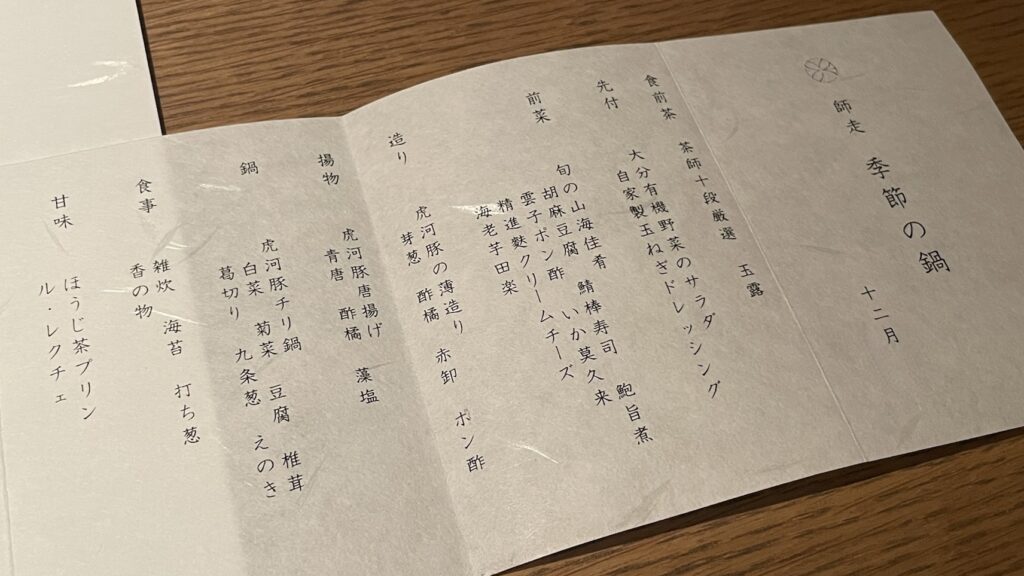 師走　季節の鍋　十二月
食前茶　茶師十段厳選　玉露
先付　大分有機野菜のサラダ
自家製玉ねぎドレッシング
前菜　旬の山海佳肴　鯖棒寿司　鮑旨煮
胡麻豆腐　いか莫久来
雲子ポン酢
精進麩クリームチーズ
海老芋田楽
造り　虎河豚の薄造り　赤卸　ポン酢
芽葱　酢橘
揚物　虎河豚唐揚げ
青唐　酢橘　藻塩
鍋　虎河豚チリ鍋　豆腐　椎茸
白菜　菊菜　九条葱　えのき
葛切り
食事　雑炊　海苔　打ち葱
香の物
甘味　ほうじ茶プリン
ル・レクチェ